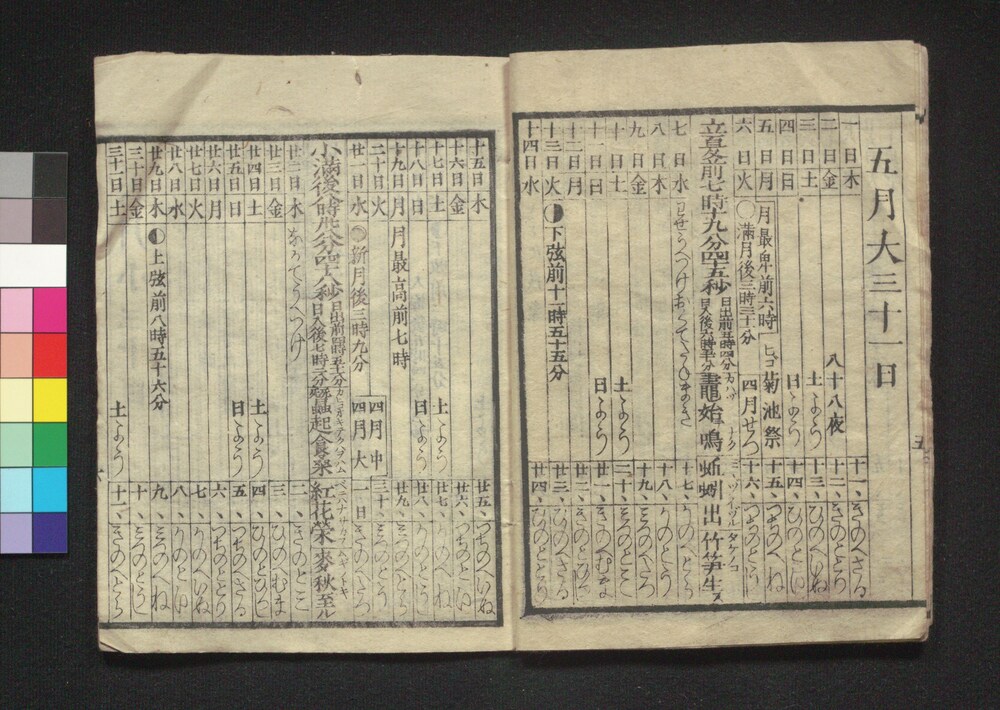 五月大三十一日
一日木 十一、きのえさる
二日金 八十八夜 十二、きのとのとり
三日土 土よう 十三、ひのえいぬ
四日日 日よう 十四、ひのとのゐ
五日月 月最卑前六時 ヒゴ菊池祭 十五、つちのえね
六日火 ◯満月後三時三十分 四月せつ 十六、つちのとうし
立夏夕前七時十九分四十五秒 日出前五時四分 日入後六時五十六分 鼃始鳴 蚯蚓出 竹笋生ス
七日水 十七、かのえとら
八日木 十八、かのとのう
九日金 十九、みづのえたつ
十日土 土よう 二十、みづのとのみ
十一日日 日よう 廿一、きのえむま
十二日月 廿二、きのとのひつじ
十三日火 下弦前十一時五十五分 廿三、ひのえさる
十四日水 廿四、ひのとのとり
十五日木 廿五、つちのえいぬ
十六日金 廿六、つちのとのゐ
十七日土 土よう 廿七、かのえね
十八日日 日よう 廿八、かのとのうし
十九日月 月最高前七時 廿九、みづのえとら
二十日火 四月中 三十、みづのとのう
廿一日水 新月後三時九分 四月大 一日、きのえたつ
小満後 日出前四時 日入後七時 蚕起食桑 紅花栄 麦秋至ル
廿二日木 二、きのとのみ
廿三日金 三、ひのえむま
廿四日土 土よう 四、ひのとのひつじ
廿五日日 日よう 五、つちのえさる
廿六日月 六、つちのとのとり
廿七日火 七、かのえいぬ
廿八日水 八、かのとのゐ
廿九日木 上弦前八時五十六分 九、みづのえね
三十日金 十、みづのとのうし
三十一日土 土よう 十一、きのえとら